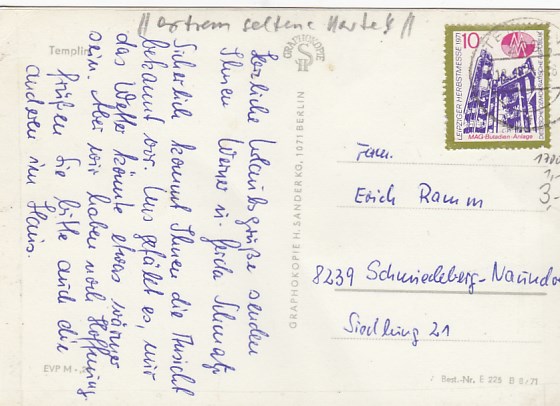 !! extrem seltene Karte !!
Templin
Herzliche Urlaubsgrüße senden
Ihnen Werner u. Frida Schmidt
Sicherlich kommt Ihnen die Ansicht
bekannt vor. Uns gefällt es, nur
das Wetter könnte etwas wärmer
sein. Aber wir haben noch Hoffnung
Grüßen Sie bitte auch die
anderen im Haus.
EVP M -,20
GRAPHOKOPIE
GRAPHOKOPIE H. SANDER KG, 1071 BERLIN
LEIPZIGER HERBSTMESSE 1971
10
DEUTSCHE DEMOKRATISCHE REPUBLIK
MAG-Butadien-Anlage
Fam.
Erich Ramm
8239 Schmiedeberg-Naundo
Siedlung 21
3,-
Best.-Nr. E 225 B 8/71